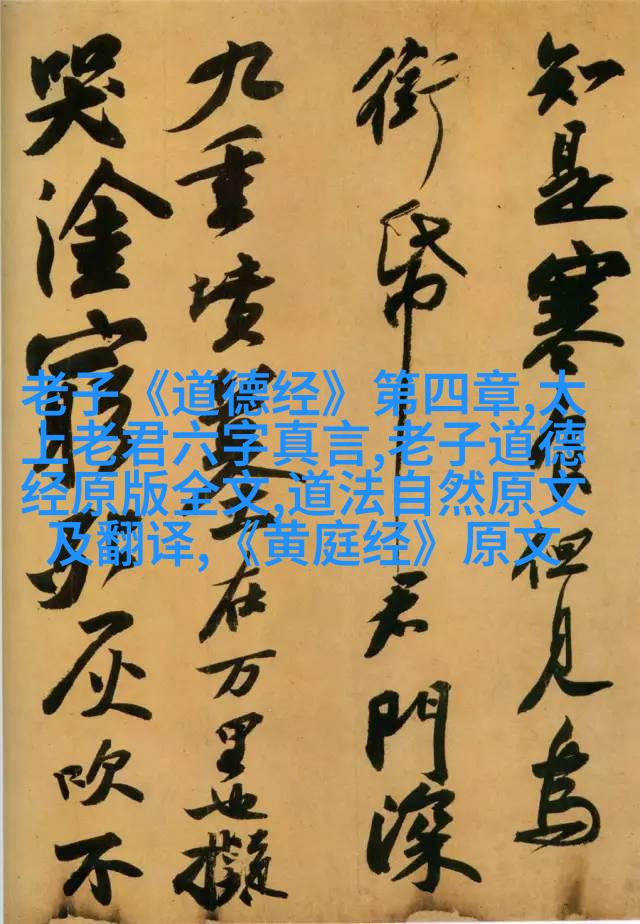 老子《道德经》第四章,太
上老君六字真言,老子道德
经原版全文,道法自然原文
及翻译,《黄庭经》原文
知是寒食但見烏
銜帋君門深
九重墳墓在万里也擬
哭塗窮死灰吹不